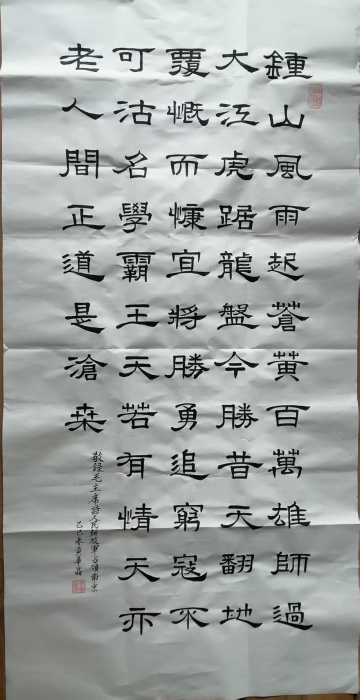 鍾山風雨起蒼黃百萬雄師過
大江虎踞龍盤今勝昔天翻地
覆慨而慷宜將勝勇追窮寇不
可沽名學霸王天若有情天亦
老人間正道是滄桑
敬錄毛主席詩人民解放軍占領南京
乙巳冬黃華